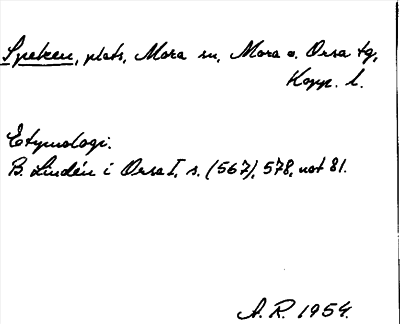 Speken, plats, Mora sn, Mora o. Orsa tg,
Kopp. l.
Etymologi.
B. Lindén i Orsa I, s. (567), 578, not 81.
A. R. 1954.